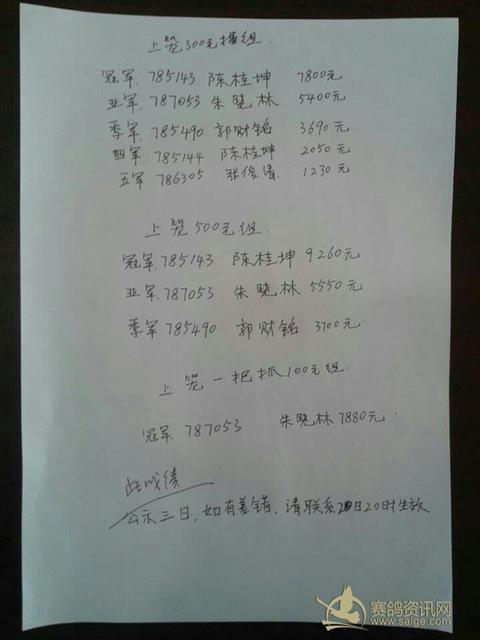 上笼300元擂组.
冠军. 785143 陈桂坤 7800元
亚军. 787053 朱晓林. 5400元
季军 785490 郭财铭 3690元
四军 785144 陈桂坤 2050元
五军 786305 张俊清 1230元
上笼500元组.
冠军. 785143 陈桂坤 9260元
亚军. 787053 朱晓林 5550元
季军 785490 郭财铭 3700元.
上笼一把抓.100元组.
冠军. 787053 朱晓林7880元.
此成绩
公示三日,如有差错,请联系 日20时生效
赛鸽资讯网
www.saige.com